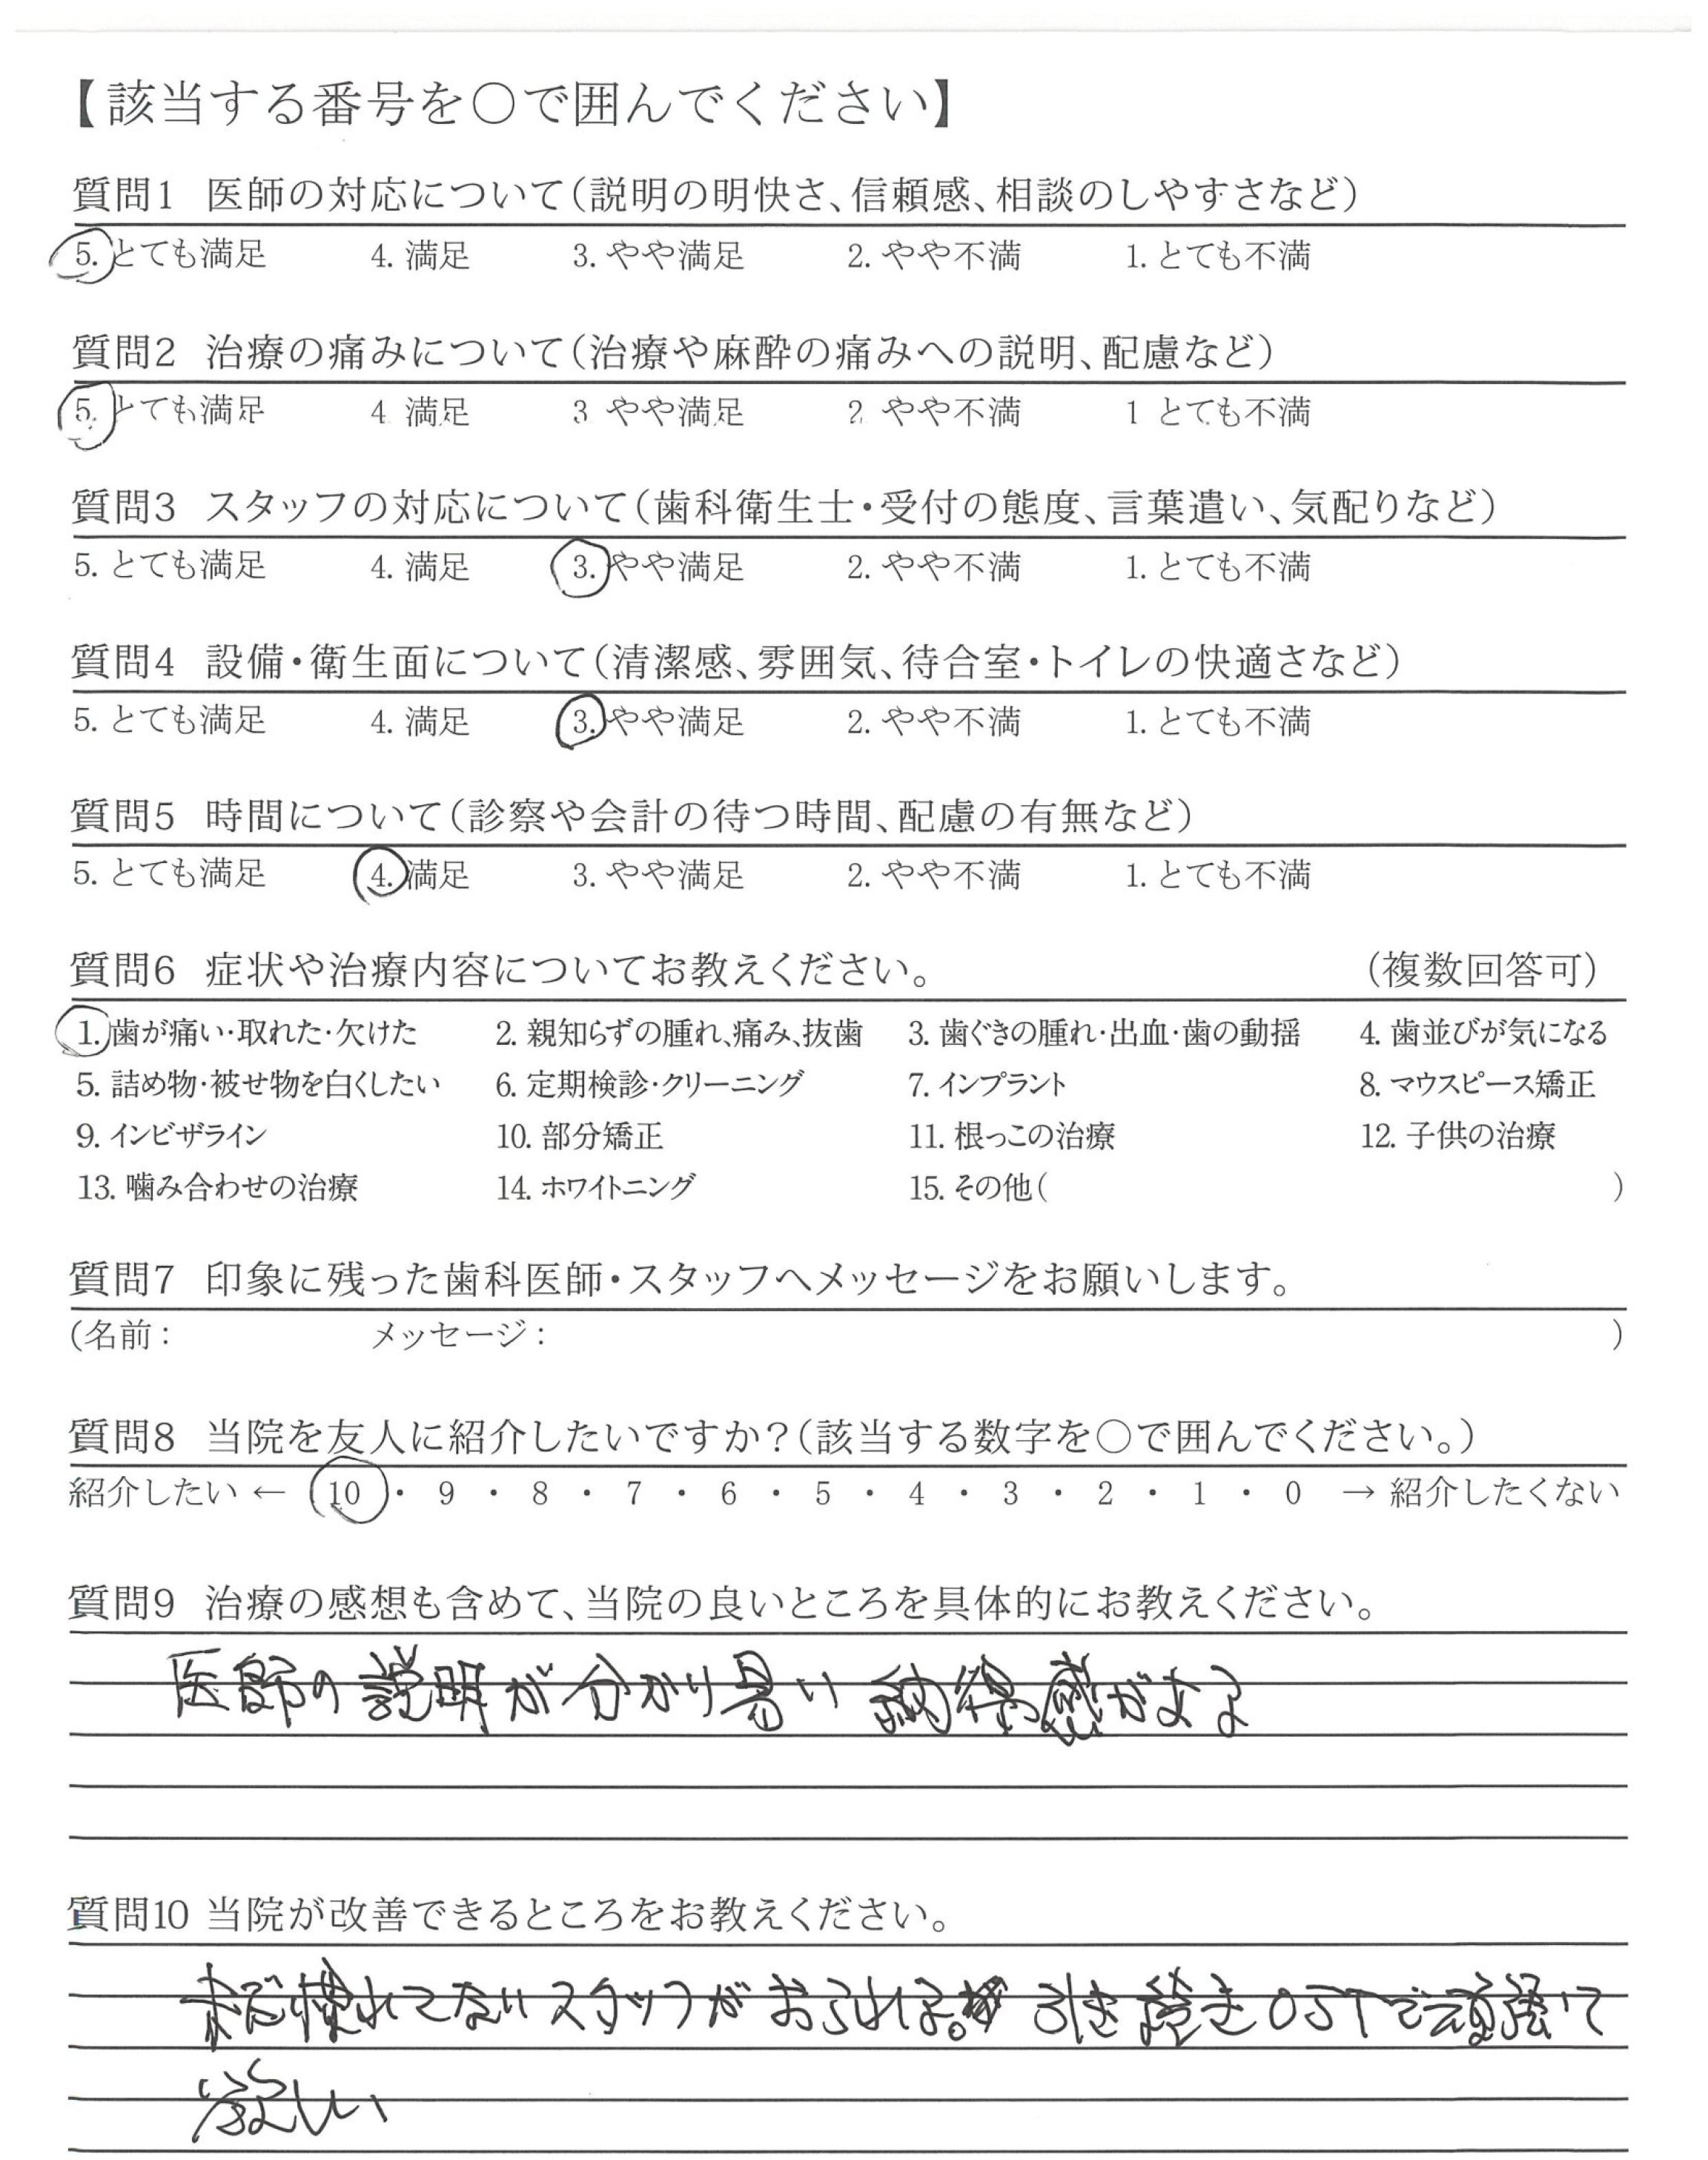 【該当する番号を○で囲んでください】
質問1 医師の対応について(説明の明快さ、信頼感、相談のしやすさなど)
5. とても満足 4. 満足 3. やや満足 2. やや不満 1. とても不満
質問2 治療の痛みについて(治療や麻酔の痛みへの説明、配慮など)
5. とても満足 4 満足 3 やや満足 2 やや不満 1 とても不満
質問3 スタッフの対応について(歯科衛生士・受付の態度、言葉遣い、気配りなど)
5. とても満足 4. 満足 3. やや満足 2. やや不満 1. とても不満
質問4 設備・衛生面について(清潔感、雰囲気、待合室・トイレの快適さなど)
5. とても満足 4. 満足 3. やや満足 2. やや不満 1. とても不満
質問5 時間について(診察や会計の待つ時間、配慮の有無など)
5. とても満足 4. 満足 3. やや満足 2. やや不満 1. とても不満
質問6 症状や治療内容についてお教えください。 (複数回答可)
1. 歯が痛い・取れた・欠けた 2. 親知らずの腫れ、痛み、抜歯 3. 歯ぐきの腫れ・出血・歯の動揺 4. 歯並びが気になる
5. 詰め物・被せ物を白くしたい 6. 定期検診・クリーニング 7. インプラント 8. マウスピース矯正
9. インビザライン 10. 部分矯正 11. 根っこの治療 12. 子供の治療
13. 噛み合わせの治療 14. ホワイトニング 15. その他( )
質問7 印象に残った歯科医師・スタッフへメッセージをお願いします。
(名前: メッセージ: )
質問8 当院を友人に紹介したいですか?(該当する数字を○で囲んでください。)
紹介したい ← 10 ・ 9 ・ 8 ・ 7 ・ 6 ・ 5 ・ 4 ・ 3 ・ 2 ・ 1 ・ 0 → 紹介したくない
質問9 治療の感想も含めて、当院の良いところを具体的にお教えください。
医師の説明が分かり易い 納得感がある
質問10 当院が改善できるところをお教えください。
まだ慣れてないスタッフがおられる。引き続きOJTで頑張って
欲しい